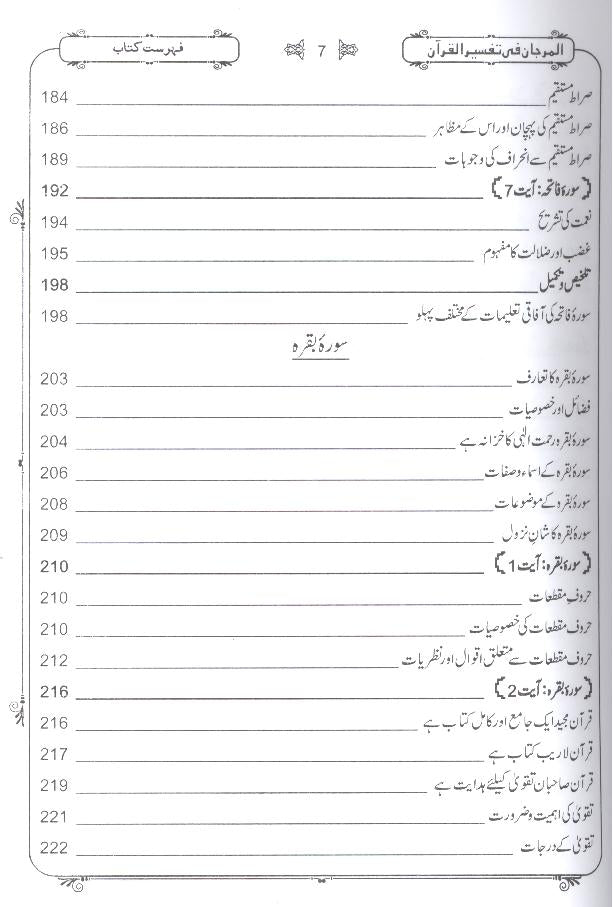 المرجان فی تفسیر القرآن 7 فہرست کتاب
صراط مستقیم 184
صراط مستقیم کی پہچان اور اس کے مظاہر 186
صراط مستقیم سے انحراف کی وجوہات 189
﴿سورۂ فاتحہ: آیت 7﴾ 192
نعمت کی تشریح 194
غضب اور ضلالت کا مفہوم 195
تلخیص و تکمیل 198
سورۂ فاتحہ کی آفاقی تعلیمات کے مختلف پہلو 198
سورۂ بقرہ
سورۂ بقرہ کا تعارف 203
فضائل اور خصوصیات 203
سورۂ بقرہ رحمت الٰہی کا خزانہ ہے 204
سورۂ بقرہ کے اسماء و صفات 206
سورۂ بقرہ کے موضوعات 208
سورۂ بقرہ کا شانِ نزول 209
﴿سورۂ بقرہ: آیت 1﴾ 210
حروف مقطعات 210
حروف مقطعات کی خصوصیات 210
حروف مقطعات سے متعلق اقوال اور نظریات 212
﴿سورۂ بقرہ: آیت 2﴾ 216
قرآن مجید ایک جامع اور کامل کتاب ہے 216
قرآن لاریب کتاب ہے 217
قرآن صاحبان تقویٰ کیلئے ہدایت ہے 219
تقویٰ کی اہمیت و ضرورت 221
تقویٰ کے درجات 222